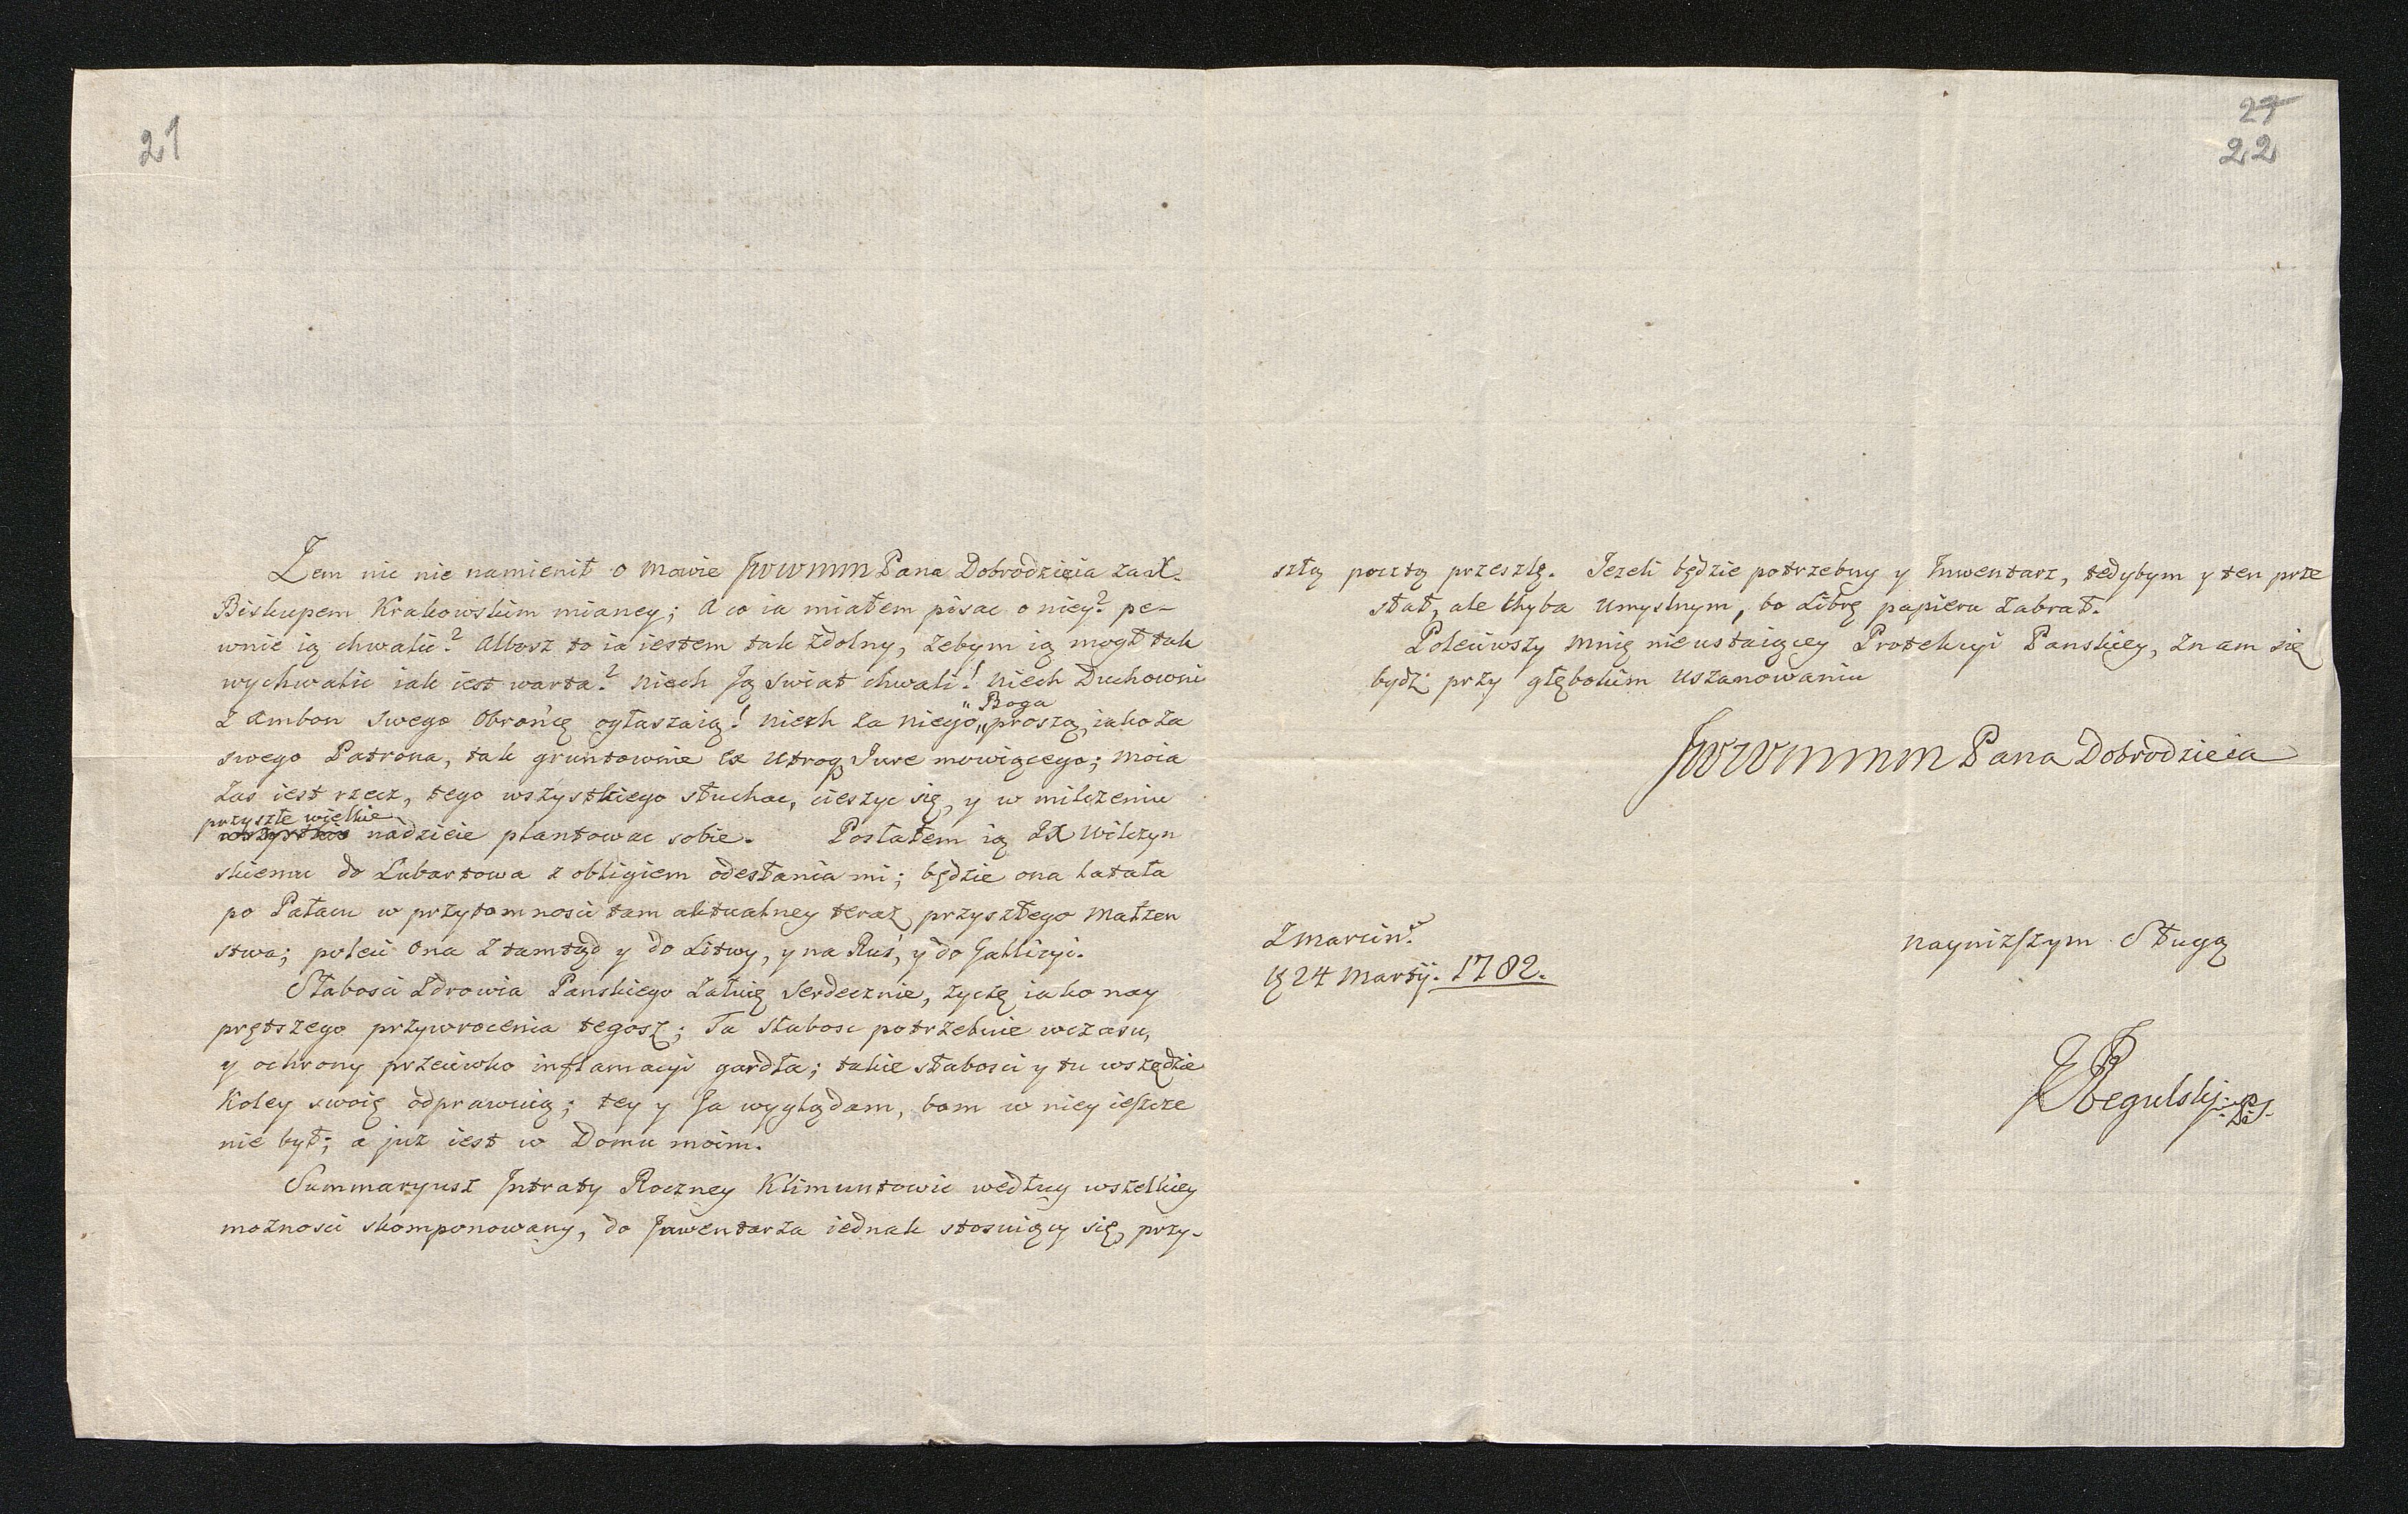 21
Zem nic nie namienił o Mowie JWWMM Pana Dobrodzieia za X.
Biskupem Krakowskim mianey; A co ia miałem pisac o niey? pe-
wnie ią chwalic? Albosz to ia iestem tak zdolny, zebym ią mogł tak
wychwalic iak iest warta? Niech Ją swiat chwali! Niech Duchowni
z Ambon swego Obrońcę ogłaszaią! niech za niego „Boga„ proszą, iako za
swego Patrona, tak gruntownie ex Utroq Jure mowiącego; Moia
zas iest rzecz, tego wszystkiego słuchac, cieszyc się, y w milczeniu
przyszłe wielkie nadzieie plantowac sobie. Posłałem ią JX Wilczyn
skiemu do Lubartowa z obligiem odesłania mi; będzie ona latała
po Pałacu w przytomnosci tam aktualney teraz przyszłego Małzen
stwa; poleci Ona z tamtąd y do Litwy, y na Ruś, y do Gallicyi.
Słabosci Zdrowia Panskiego załuię serdecznie, zyczę iako nay
prętszego przywrocenia tegosz; Ta słabosc potrzebuie wczasu,
y ochrony przeciwko inflamacyi gardła; takie słabosci y tu wszędzie
Koley swoię odprawuią; tey y Ja wyglądam, bom w niey ieszcze
nie był; a juz iest w Domu moim.
Summaryusz Intraty Roczney Klimuntowic według wszelkiey
moznosci skomponowany, do Inwentarza iednak stosuiący się, przy-
27
22
szłą pocztą przeszlę. Jezeli będzie potrzebny y Inwentarz, tedybym y ten prze
słał, ale chyba Umyslnym, bo Librę papieru zabrał.
Poleciwszy Mnię nieustaiącey Protekcyi Panskiey, znam się
bydz przy głębokim Uszanowaniu
JWWMMM Pana Dobrodzieia
Z Marcin.
D 24 Martij. 1782.
Nayniższym Sługą
Regulski